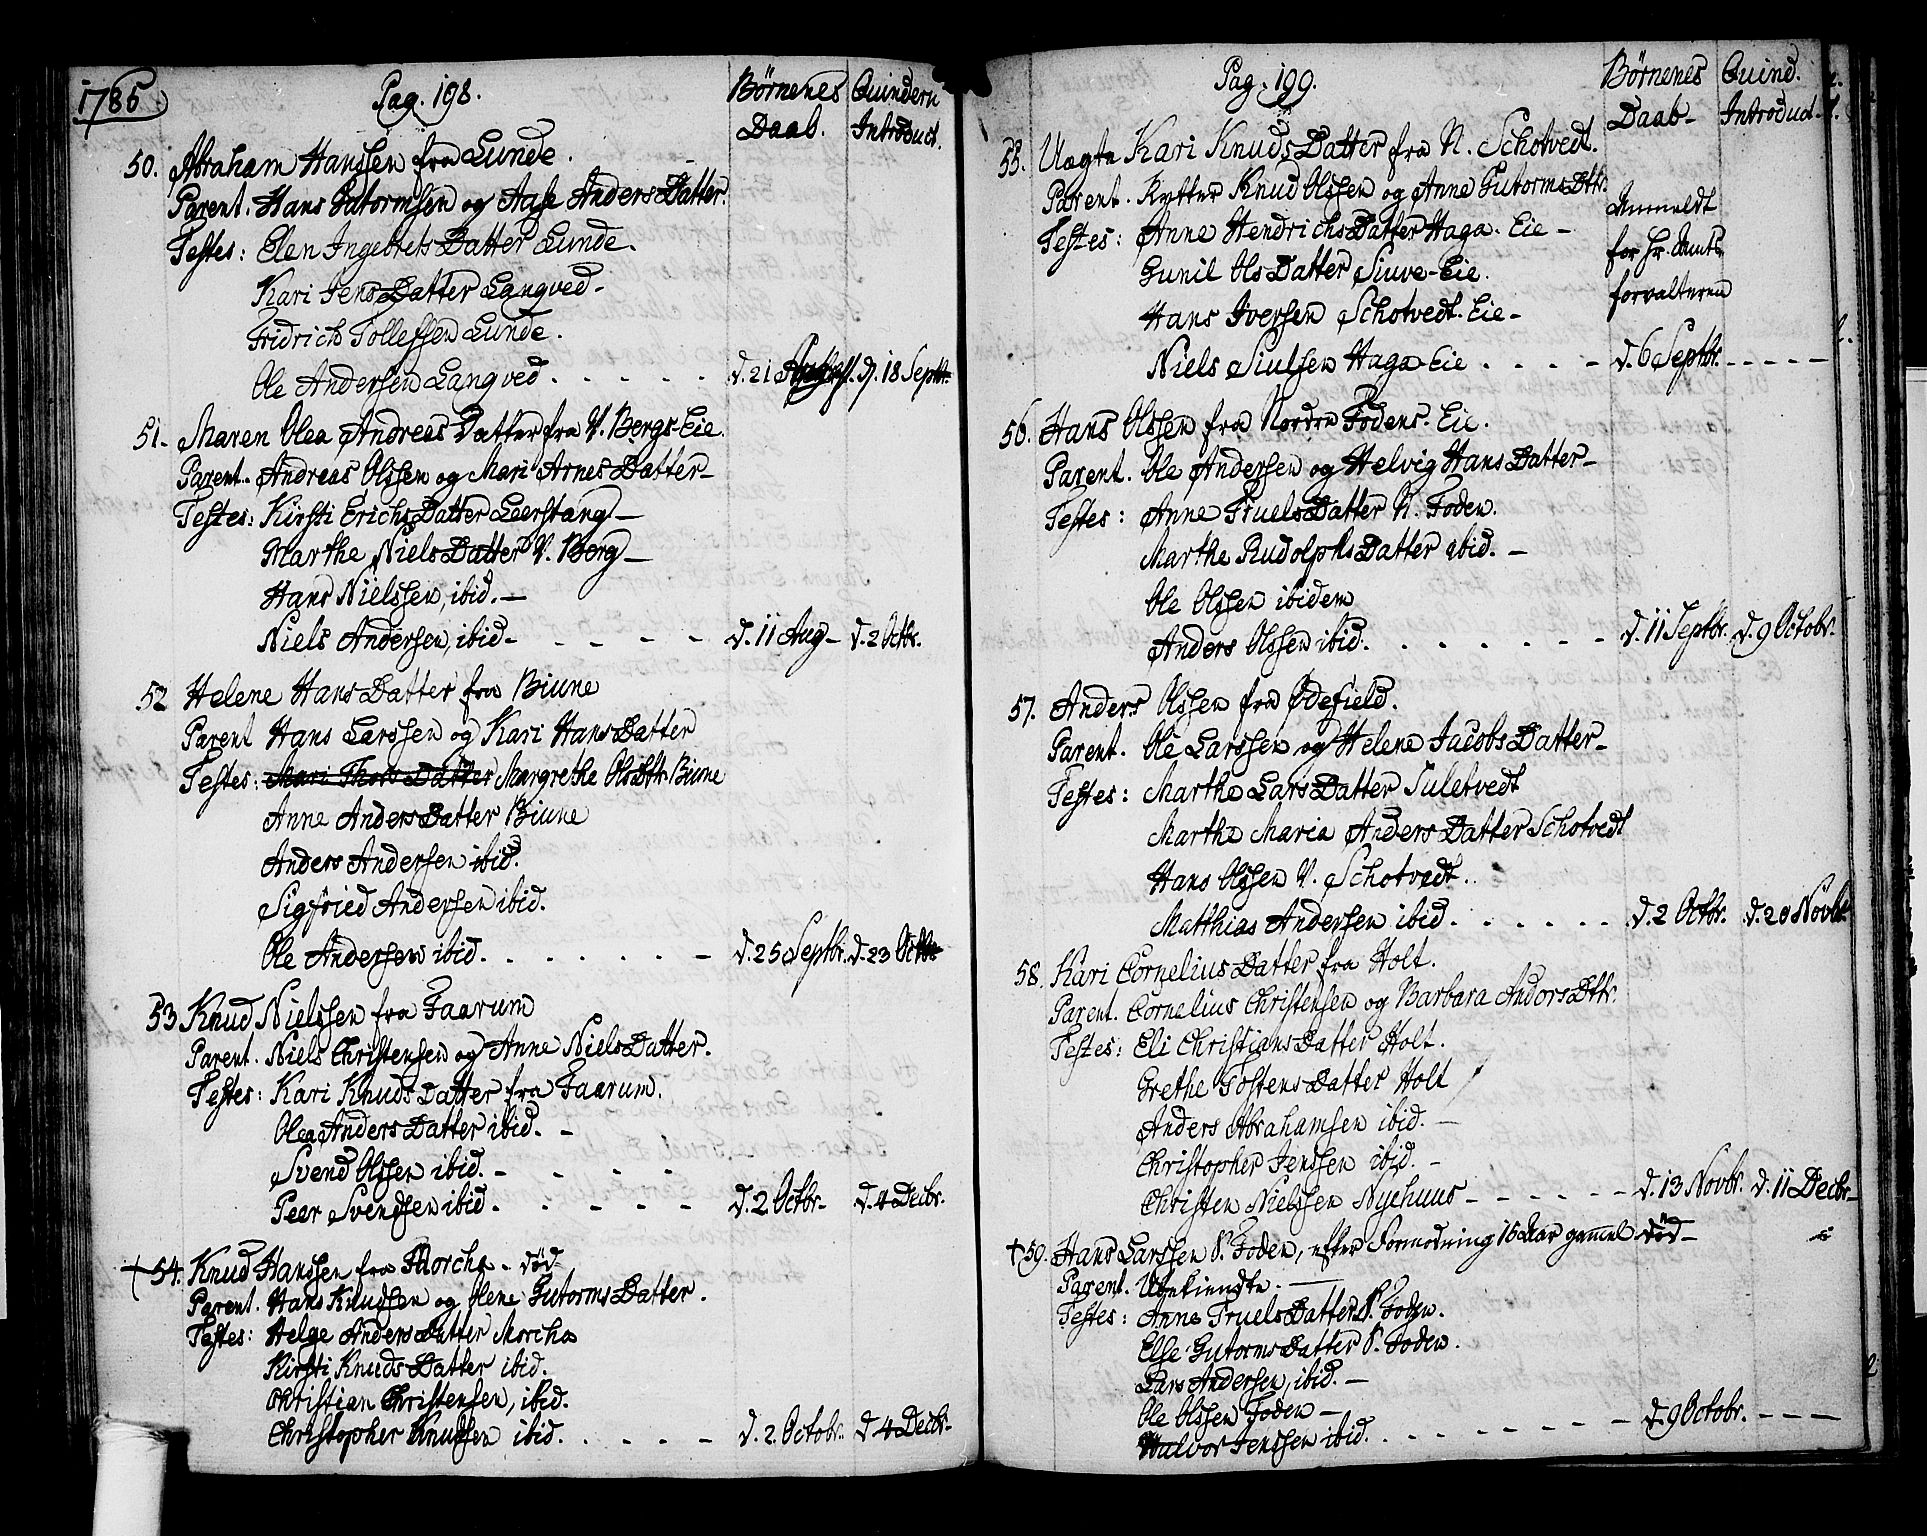 1785
Pag. 198.
Börnenes Daab.
Quindern Introduct.
50. Abraham Hanssen fra Lunde.
Parent. Hans Gutormsen og Aase Anders Datter.
Testes: Elen Ingebrets Datter Lunde.
Kari Jens Datter Langved.
Fridrich Tollefsen Lunde.
Ole Andersen Langved . . . . . d. 21 d. 18 Septbr.
51. Maren Olea Andreas Datter fra V. Bergs-Eie.
Parent. Andreas Olssen og Mari Arnes Datter
Testes: Kirsti Erichs Datter Leerstang
Marthe Niels Datter V. Berg
Hans Nielssen, ibid.
Niels Andersen, ibid - - - - - d. 11 Aug - d. 2 Octbr.
52 Helene Hans Datter fra Biune
Parent Hans Larssen og Kari Hans Datter
Testes: Mari Thors Datter Margrethe Ols Dtr. Biune
Anne Anders Datter Biune
Anders Andersen ibid.
Sigfried Andersen ibid.
Ole Andersen ibid. . . . . . - d. 25 Septbr. d. 23 Octbr
53 Knud Nielssen fra Faarum
Parent. Niels Christensen og Anne Niels Datter.
Testes: Kari Knuds Datter fra Faarum.
Olea Anders Datter ibid.
Svend Olssen ibid.
Peer Svendsen ibid. - - - - - d. 2 Octbr. d. 4 Decbr.
† 54. Knud Hanssen fra Morcha - död
Parent. Hans Knudsen og Olene Gutorms Datter.
Testes: Helge Anders Datter Morcha
Kirsti Knuds Datter ibid.
Christian Christensen, ibid.
Christopher Knudsen ibid. . . . . - d. 2. Octobr. d 4 Decbr.
Pag. 199.
Börnenes Daab
Quind. Introduct.
55. Uægte Kari Knuds Datter fra N. Schotvedt.
Parent. Rytter Knud Olssen og Anne Gutorms Dtr.
Testes: Anne Hendrichs Datter Haga-Eie
Gunil Ols Datter Siuve-Eie.
Hans Iversen Schotvedt-Eie
Niels Siulsen Haga-Eie . . . - d. 6 Septbr. - - - -
Anmeldt
for Hr. Amts
forvalteren
56. Hans Olssen fra Nordre Fodens-Eie.
Parent. Ole Andersen og Helvig Hans Datter
Testes: Anne Truels Datter N. Foden.
Marthe Rudolphs Datter ibid.
Ole Olssen ibidem
Anders Olssen ibid. . . . . . - d. 11 Septbr. d. 9 Octobr.
57. Anders Olssen fra Ödefield.
Parent. Ole Larssen og Helene Jacobs Datter
Testes: Marthe Lars Datter Suletvedt
Marthe Maria Anders Datter Schotvedt
Hans Olssen V. Schotvedt.
Matthias Andersen ibid. . . . . - d. 2 Octbr. d. 20 Novbr.
58. Kari Cornelius Datter fra Holt.
Parent. Cornelius Christensen og Barbara Anders Dtr.
Testes: Eli Christians Datter Holt.
Grethe Tostens Datter Holt
Anders Abrahamsen ibid.
Christopher Jenssen ibid.
Christen Nielssen Nyehuus - - - - - d. 13 Novbr. d. 11 Decbr
† 59. Hans Larssen S. Foden, efter Formodning 15 Aar gammel död
Parent. Ubekiendte.
Testes: Anne Truels Datter S. Foden.
Else Gutorms Datter S. Foden.
Lars Andersen, ibid.
Ole Olssen Foden
Halvor Jenssen ibid. . . . . . - d. 9 Octobr. - - - -